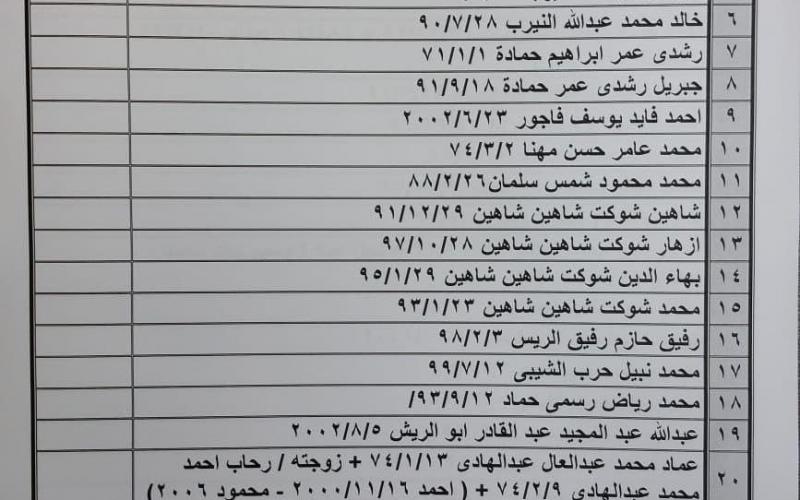 ٦ خالد محمد عبدالله النيرب ٩٠/٧/٢٨
٧ رشدى عمر ابراهيم حمادة ٧١/١/١
٨ جبريل رشدى عمر حمادة ٩١/٩/١٨
٩ احمد فايد يوسف فاجور ٢٠٠٢/٦/٢٣
١٠ محمد عامر حسن مهنا ٧٤/٣/٢
١١ محمد محمود شمس سلمان٨٨/٢/٢٦
١٢ شاهين شوكت شاهين شاهين ٩١/١٢/٢٩
١٣ ازهار شوكت شاهين شاهين ٩٧/١٠/٢٨
١٤ بهاء الدين شوكت شاهين شاهين ٩٥/١/٢٩
١٥ محمد شوكت شاهين شاهين ٩٣/١/٢٣
١٦ رفيق حازم رفيق الريس ٩٨/٢/٣
١٧ محمد نبيل حرب الشيبى ٩٩/٧/١٢
١٨ محمد رياض رسمى حماد ٩٣/٩/١٢/
١٩ عبدالله عبد المجيد عبد القادر ابو الريش ٢٠٠٢/٨/٥
٢٠ عماد محمد عبدالعال عبدالهادى ٧٤/١/١٣ + زوجته / رحاب احمد
محمد عبدالهادى ٧٤/٢/٩ + ( احمد ٢٠٠٠/١١/١٦ - محمود ٢٠٠٦)